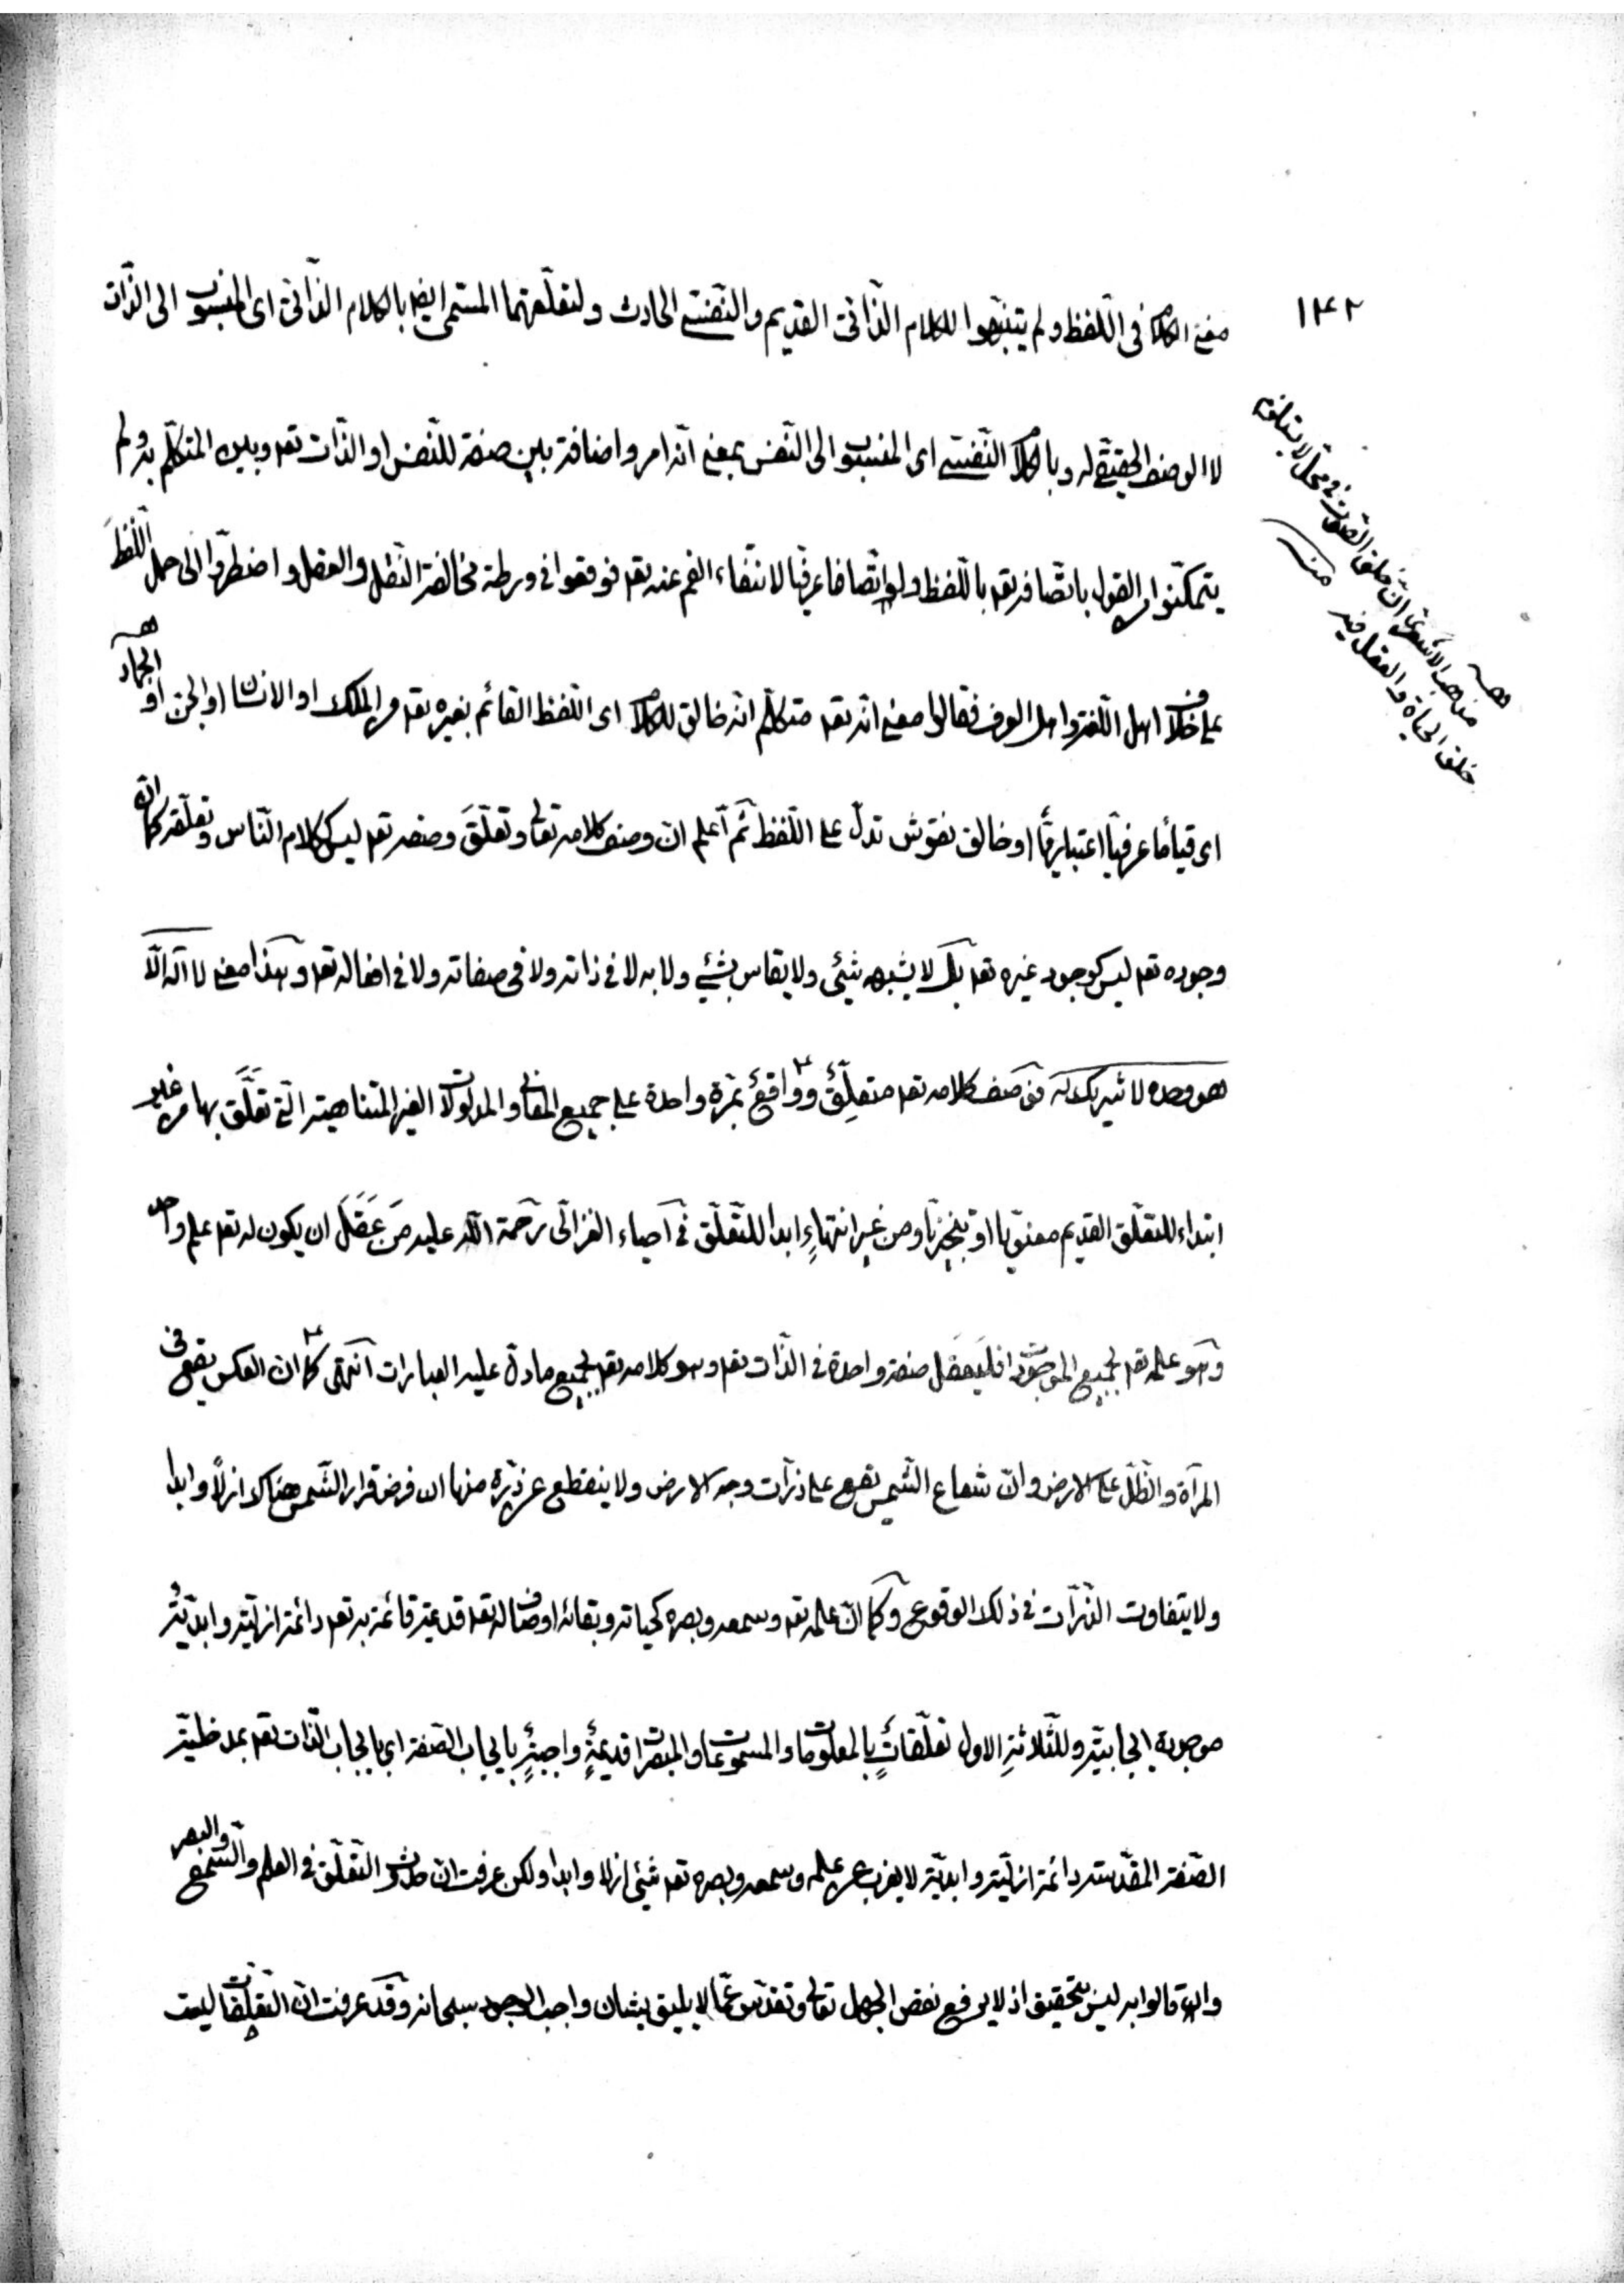 ١٤٢
معنى الكلام فى اللّفظ ولم يتنبّهوا للكلام الذّاتىّ القديم والنّفسىّ الحادث ولتعلّقهما المسمّى ايضا بالكلام الذّاتىّ اى المنسوب الى الذّات
لا الوصف الحقيقى له وبالكلام النّفسىّ اى المنسوب الى النّفس بمعنى انّه امر واضافة بين صفة للنّفس او الذّات تعه وبين المتكلّم به ولم
يتمكّنوا من القول باتّصافه تعه باللّفظ ولو اتّصافا عرفيّا لانتفاء الفم عنه تعه فوقعوا فى ورطة مخالفة النّقل والعقل واضطرّوا الى حمل اللّفظ
على خلاف اهل اللّغة واهل العرف فقالوا معنى انّه تعه متكلّم انّه خالق للكلام اى اللّفظ القائم بغيره تعه من الملك او الانسان او الجنّ او الجماد
اى قياما عرفيّا اعتباريّا او خالق نقوش تدلّ على اللّفظ ثمّ اعلم انّ وصف كلامه تعالى وتعلّق وصفه تعه ليس ككلام النّاس وتعلّقه كما انّ
وجوده تعه ليس كوجود غيره تعه بل لا يشبهه شيئ ولا يقاس بشيئ ولا به لا فى ذاته ولا فى صفاته ولا فى افعاله تعه وهذا معنى لا اله الّا
هو وحده لا شريك له فوصف كلامه تعه متعلّق وواقع بمرّة واحدة على جميع المعانى والمدلولات الغير المتناهية الّتى تعلّق بها من غير
ابتداء للتعلّق القديم معنويّا او تنجيزيّا ومن غير انتهاء ابدا للتّعلّق فى احياء الغزالى رحمة اللّه عليه من عقل ان يكون له تعه علم واحد
وهو علمه تعه بجميع الموجودات فليعقل صفة واحدة فى الذّات تعه وهو كلامه تعه بجميع ما دلّ عليه العبارات انتهى كما ان العكس يقع فى
المرآة والظّلّ على الارض وانّ شعاع الشّمس يقع على ذرّات وجه الارض ولا ينقطع عن ذرّة منها ان فرض قرار الشّمس هناك ازلا وابدا
ولا يتفاوت الذّرّات فى ذلك الوقوع وكما انّ علمه تعه وسمعه وبصره كحياته وبقائه اوصاف له تعه قديمة قائمة به تعه دائمة ازليّة وابديّة
موجودة ايجابيّة وللثّلاثة الاول تعلّقات بالمعلومات والمسموعات والمبصرات قديمة واجبة بايجاب الصّفة اى بايجاب الذّات تعه بمدخليّة
الصّفة المقدّسة دائمة ازليّة وابديّة لا يعزب عن علمه وسمعه وبصره تعه شيئ ازلا وابدا ولكن عرفت انّ حدوث التّعلّق فى العلم والسّمع والبصر
وان قالوا به ليس بتحقيق اذ لا يرفع نقص الجهل تعالى وتقدّس عمّا لا يليق بشان واجب الوجود سبحانه وقد عرفت انّ التّعلّقات ليست
مذهب الاشعرىّ انّ خلق الصّوت فى محلّ لا يتعلّق
خلق الحياة والعقل فيه منه